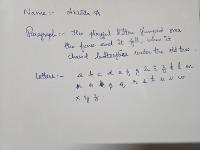 Name :-
Paragraph :- The playful kitten jumped over
the fence and it fell, when it
chased butterflies under the old tree.
Letters :- a b c d e f g h i j k l m
n o p q r s t u v w
x y z.